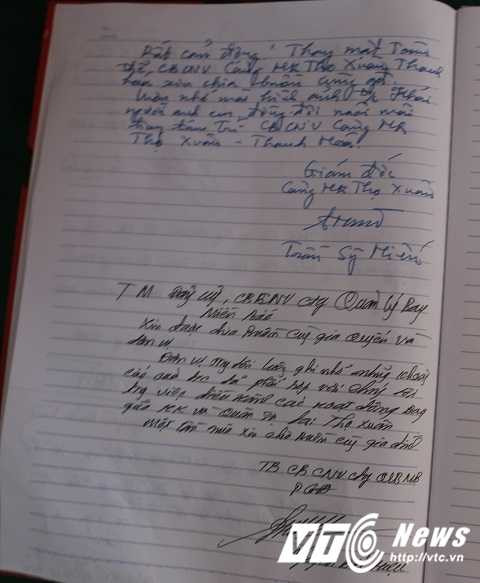 Rất cảm động! Thay mặt toàn
thể CBCNV Cảng HK Thọ Xuân Thanh
hóa xin chia buồn cùng gđ.
Luôn nhớ mãi hình ảnh
người anh em, đồng đội
CBCNV Cảng HK
Thọ Xuân - Thanh Hóa!
Giám đốc
Cảng HK Thọ Xuân
Trần Sỹ Miền
TM Đảng uỷ, CBCNV cty Quản lý Bay
Miền Bắc
Xin được chia buồn cùng gia quyến và
đơn vị
Đơn vị luôn ghi nhớ những
đã phối hợp với chúng tôi
điều hành các hoạt động bay
giữa HK và Quân sự tại Thọ Xuân
Một lần nữa xin chia buồn cùng gia đình
TB CBCNV cty QLBMB
PGĐ
VTC News
http://vtc.vn